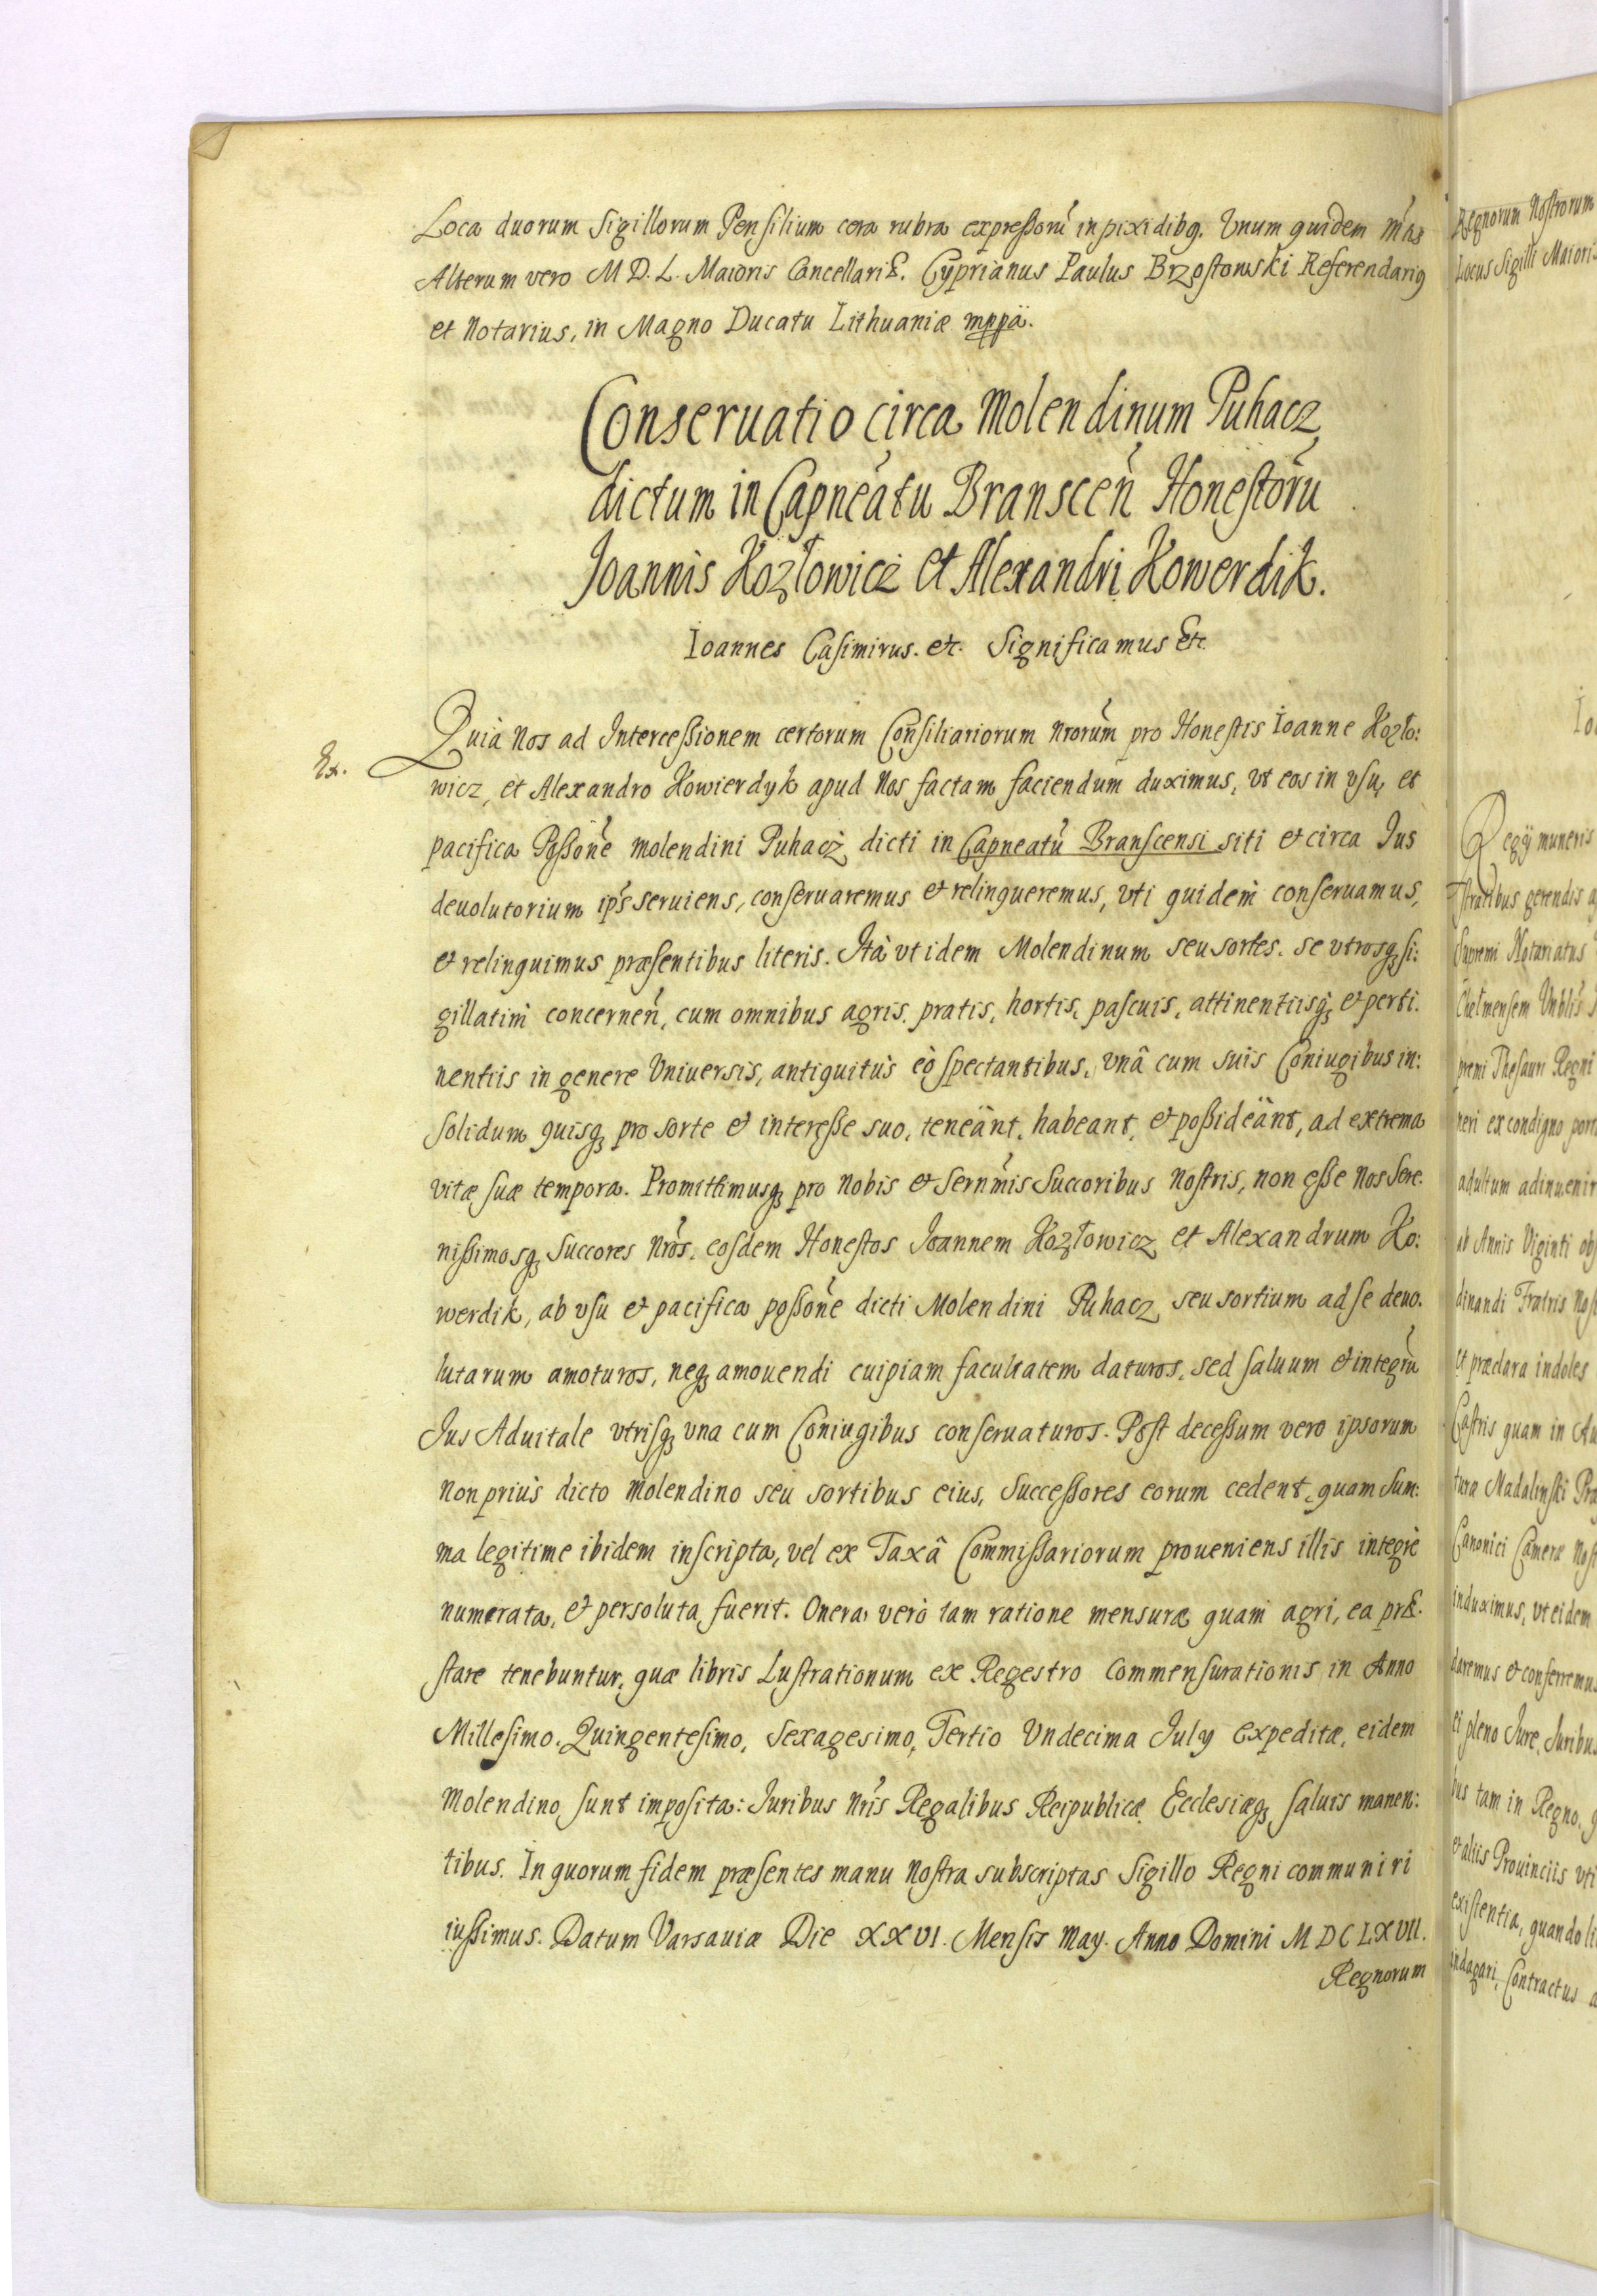 Loca duorum Sigillorum Pensilium cera rubra expressorũ in pixidibq. Unum quidem
Alterum vero M D. L. Maioris Cancellariæ. Cyprianus Paulus Brzostowski Referendariq
et Notarius, in Magno Ducatu Lithuaniæ mppä.
Conseruatio circa Molendinum Puhacz
dictum in Capneatu Branscen Honestorũ
Joannis Kozłowicz et Alexandri Kowerdik.
Ioannes Casimirus. etc. Significamus Etc
Quià Nos ad Intercessionem certorum Consiliariorum Nrorum pro Honestis Ioanne Kozło:
Ex.
wicz, et Alexandro Kowierdyk apud Nos factam faciendum duximus, vt eos in vsu, et
pacifica Possone molendini Puhacz dicti in Capneatu Branscensi siti et circa Ius
deuolutorium ips seruiens, conseruaremus et relinqueremus, vti quidem conseruamus,
et relinquimus præsentibus literis. Ità vt idem Molendinum seu sortes. se vtrosq si:
gillatim concernen, cum omnibus agris. pratis, hortis, pascuis, attinentiisq et perti.
nentiis in genere Uniuersis, antiquitùs eò spectantibus, vnâ cum suis Coniugibus in:
solidum quisq pro sorte et interesse suo, teneänt, habeant, et possideänt, ad extrema
vitæ suæ tempora. Promittimusq pro Nobis et Sernmis Succoribus Nostris, non esse Nos Sere.
nissimosq Succores Nros. eosdem Honestos Ioannem Kozłowicz et Alexandrum Ko:
werdik, ab vsu et pacifica possone dicti Molendini Puhacz seu sortium ad se deuo.
lutarum amoturos, neq amouendi cuipiam facultatem daturos, sed saluum et integrũ
Jus Aduitale vtrisq vna cum Coniugibus conseruaturos. Post decessum vero ipsorum
non priùs dicto Molendino seu sortibus eius, Successores eorum cedent, quam sum:
ma legitime ibidem inscripta, vel ex Taxâ Commissariorum proueniens illis integrè
numerata, et persoluta fuerit. Onera verò tam ratione mensuræ quam agri, ea præ.
stare tenebuntur, quæ libris Lustrationum ex Regestro Commensurationis in Anno
Millesimo. Quingentesimo, Sexagesimo, Tertio Undecima July expeditæ, eidem
Molendino sunt imposita: Iuribus Nris Regalibus Reipublicæ Ecclesiæq saluis manen:
tibus. In quorum fidem præsentes manu Nostra subscriptas Sigillo Regni communiri
iussimus. Datum Varsauiæ Die XXVI. Mensis May. Anno Domini M DC LXVII.
Regnorum
Regnorum Nostrorum
Locus Sigilli Maioris
Regÿ muneris
gerendis
Supremi Notariatus
Thesauri Regni
neri ex condigno
ab Annis Viginti
Fratris
et præclara indoles
Castris quam in
tura Madalinski
Canonici Cameræ
induximus, vt eidem
daremus et conferremus
ei pleno Jure, Juribus
tam in Regno,
et aliis Prouinciis vti
existentia, quando
indagari, Contractus